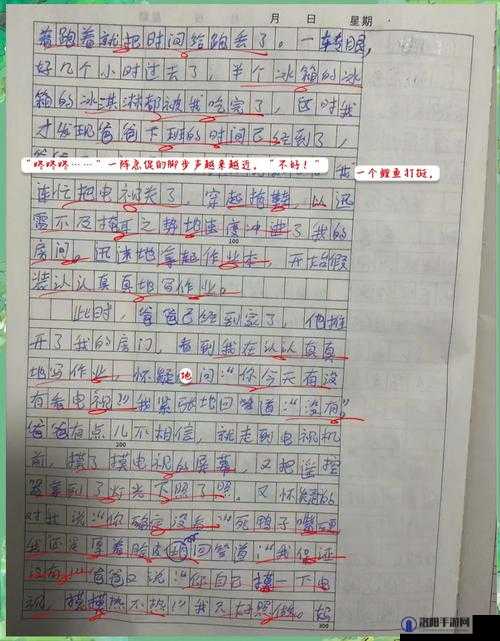 月 日 星期
着跑着就把时间给跑丢了。一转眼,
好几个小时过去了,半个冰箱的冰
箱的冰淇淋都被我吃完了,这时我
才发现爸爸下班的时间已经到了,
“咚咚咚……”一阵急促的脚步声越来越近,“不好!”我一个鲤鱼打挺,
连忙把电视关了,穿起拖鞋,以迅
雷不及掩耳之势地速度冲进了我的
100
房间。迅来地拿起作业本,开始假
装认认真真地写作业。
此时,爸爸已经到家了,他推
开了我的房门,看到我在认认真真
地写作业,怀疑地问:“你今天有没
有看电视?”我紧张地回答道:“没有”
爸爸有点儿不相信,就走到电视机
200
前,摸了摸电视的屏幕,又把遥控
器拿到了灯光下照了照。又怀疑的
对我说:“你确定没看”死鸭子嘴硬
我还是厚着脸皮回答道:“我保证
没有”爸爸又说:“你自己摸一下电
300
视,摸摸热不热”我只好照做。好
洛阳手游网